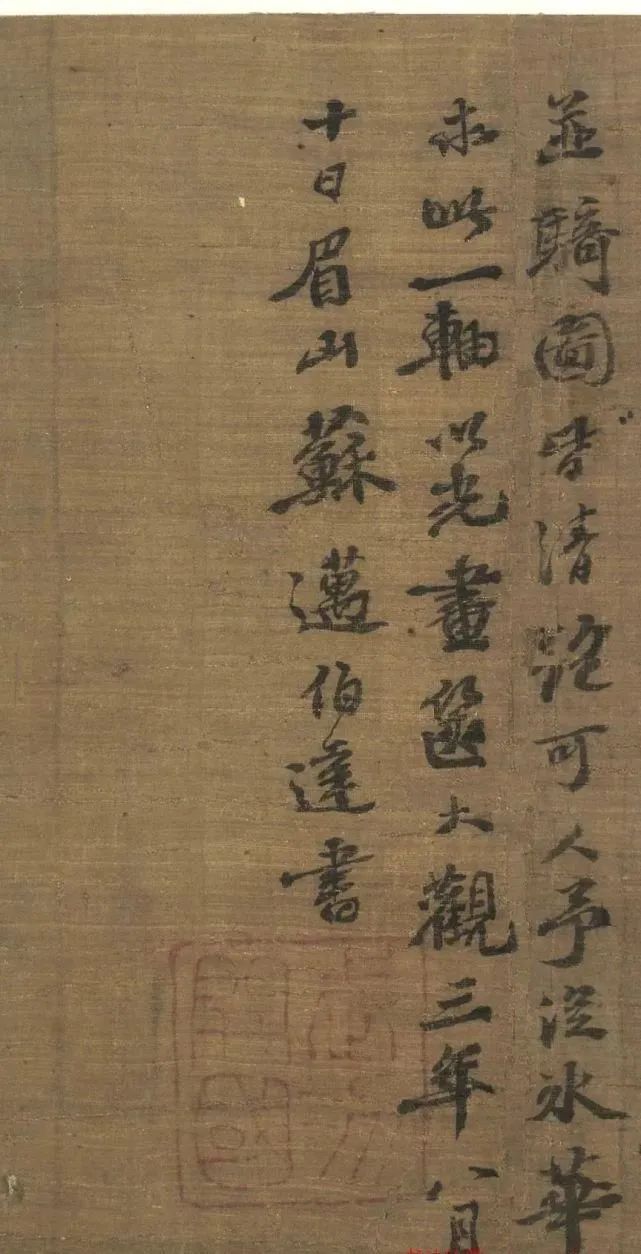 並騎圖皆清絕可人予從冰華
求此一軸以光畫篋大觀三年八月
十日眉山蘇邁伯達書